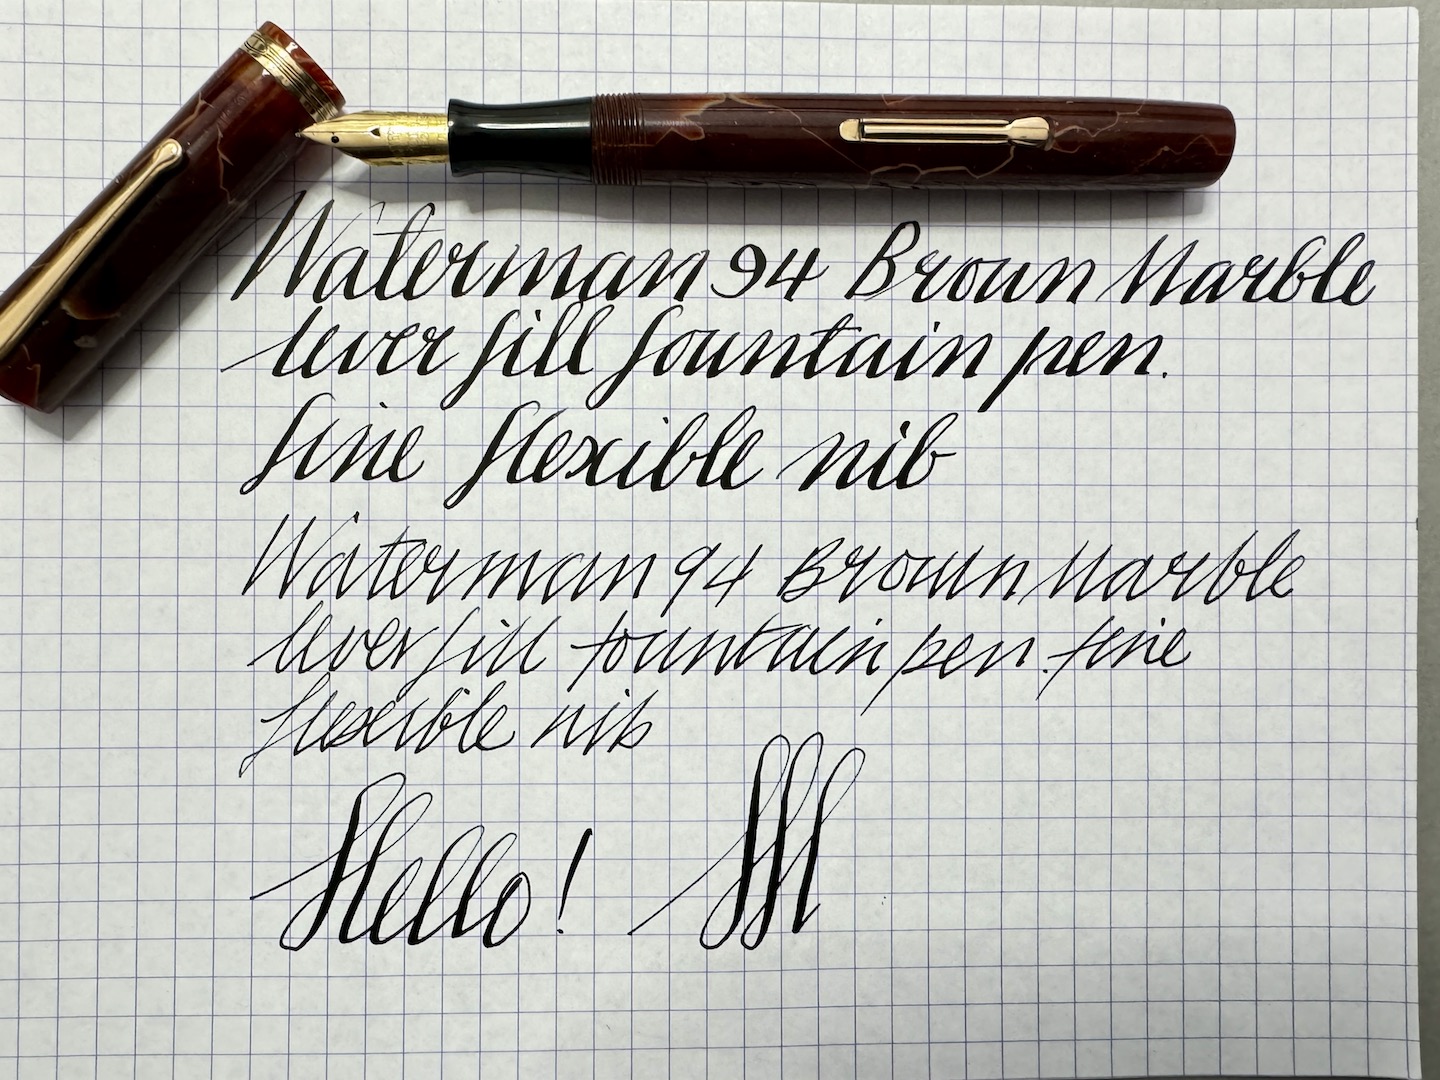 Waterman 94 Brown Marble
lever fill fountain pen.
fine flexible nib
Waterman 94 Brown Marble
lever fill fountain pen. fine
flexible nib
Hello!